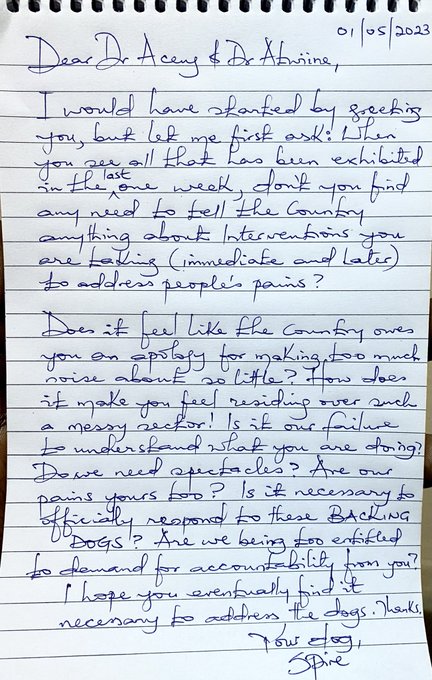 01/05/2023
Dear Dr Aceng & Dr Atwiine,
I would have started by greeting
you, but let me first ask: When
you see all that has been exhibited
in the last one week, don't you find
any need to tell the Country
anything about Interventions you
are taking (immediate and later)
to address people's pains?
Does it feel like the Country owes
you an apology for making too much
noise about so little? How does
it make you feel residing over such
a messy sector! Is it our failure
to understand what you are doing?
Do we need spectacles? Are our
pains yours too? Is it necessary to
officially respond to these BACKING
DOGS? Are we being too entitled
to demand for accountability from you?
I hope you eventually find it
necessary to address the dogs. Thanks.
Your dog,
Spire